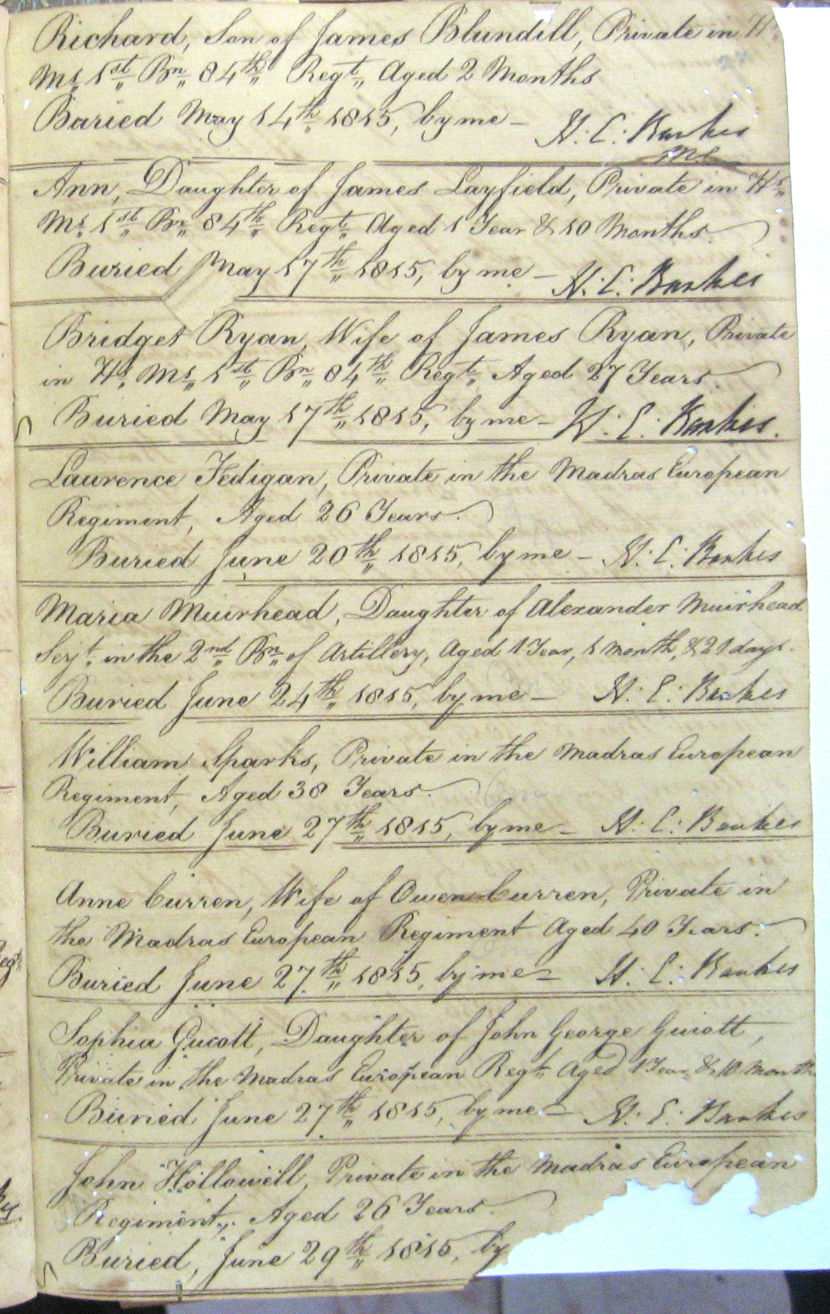 Richard, Son of James Blundill, Private in H.
Ms. 1st Bn 84th Regt, Aged 2 Months
Buried May 14th 1815, by me –
Ann, Daughter of James Layfield, Private in Hs.
Ms. 1st Bn 84th Regt, Aged 1 Year & 10 Months.
Buried May 17th 1815, by me – H: C: Bankes
Bridget Ryan, Wife of James Ryan, Private
in Hs. Ms. 1st Bn 84th Regt, Aged 27 Years.
Buried May 17th 1815, by me – H: C: Bankes.
Laurence Fedigan, Private in the Madras European
Regiment, Aged 26 Years.
Buried June 20th 1815, by me – H: C: Bankes
Maria Muirhead, Daughter of Alexander Muirhead
Serjt. in the 2nd Bn of Artillery, Aged 1 Year, 1 Month, & 21 days.
Buried June 24th 1815, by me – H: C: Bankes
William Sparks, Private in the Madras European
Regiment, Aged 38 Years.
Buried June 27th 1815, by me – H: C: Bankes
Anne Curren, Wife of Owen Curren, Private in
the Madras European Regiment Aged 40 Years.
Buried June 27th 1815, by me – H: C: Bankes
Sophia Guiott, Daughter of John George Guiott,
Private in the Madras European Regt. Aged 1 Year & 10 Month
Buried June 27th 1815, by me – H: C: Bankes
John Hollowell, Private in the Madras European
Regiment, Aged 26 Years.
Buried, June 29th 1815, by